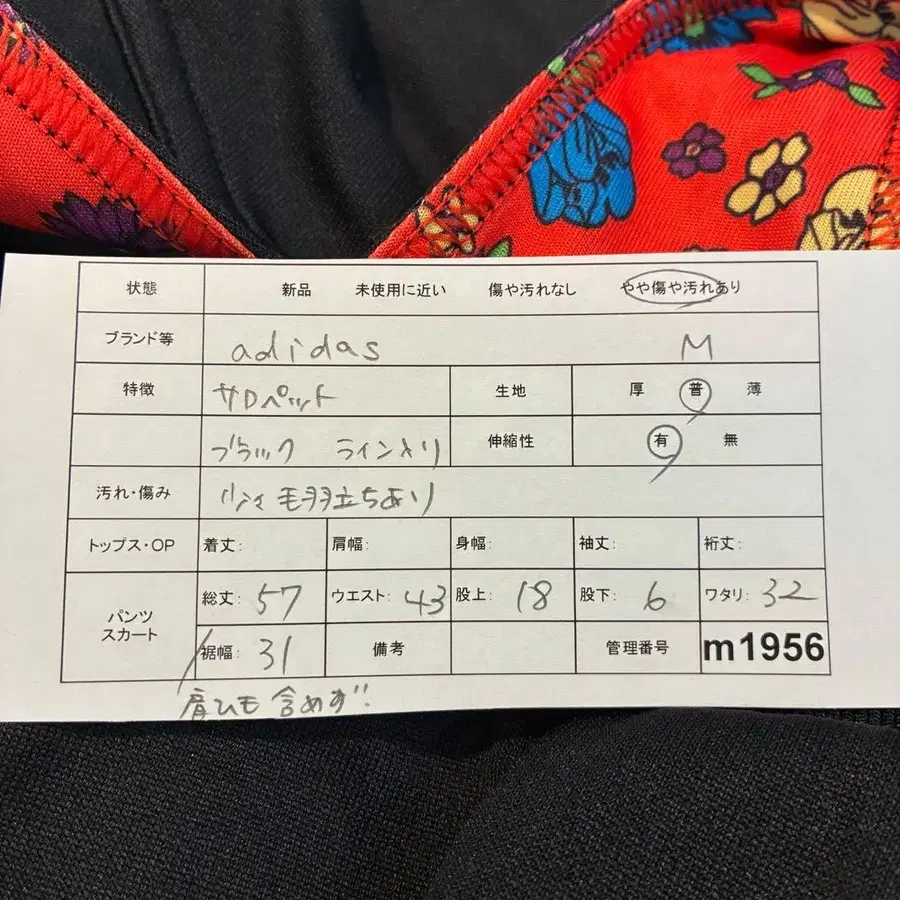 状態 新品 未使用に近い 傷や汚れなし やや傷や汚れあり
ブランド等 adidas M
特徴 サロペット 生地 厚 普 薄
ブラック ライン入り 伸縮性 有 無
汚れ・傷み 毛羽立ちあり
トップス・OP 着丈: 肩幅: 身幅: 袖丈: 裄丈:
パンツ スカート 総丈: 57 ウエスト: 43 股上: 18 股下: 6 ワタリ: 32
裾幅: 31 備考 管理番号 m1956
肩ひも含めず!!